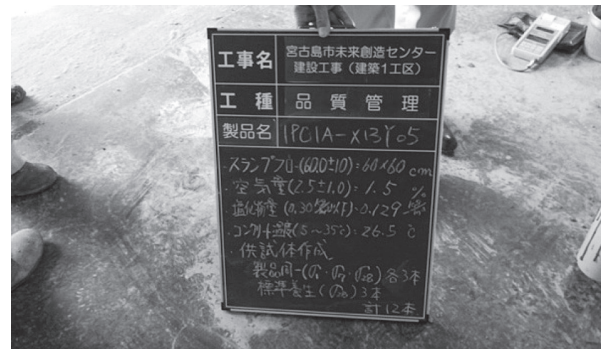 工事名 宮古島市未来創造センター
建設工事（建築1工区）
工種 品質管理
製品名 1PC1A-X13Y05
スランプフロー(60.0±10):60×60 cm
空気量(2.5±1.0):1.5 %
塩化物量(0.30 以下):0.129
コンクリート温度(5～35℃):26.5 ℃
供試体作成
製品同一 各3本
標準養生 3本
計12本